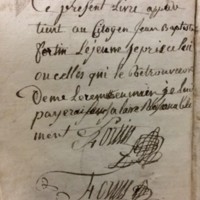 Ce present Livre appar
tient au Citoyen Jean Baptiste
fortin Lejeune je prie celui
ou celles qui le Retrouveront
De me Le remettre en main je les
payerai
ment Fortin
Fortin